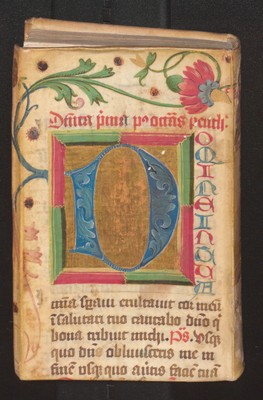 Dnica p̄ma p° octāus pentħ.
DOMINE IN TUA
mīa sꝑaui exultauit cor meū
ī salutari tuo cantabo dn̄o q̄
bona tribuit michi. Ps. Vsq̄
quo dn̄e obliuisceris me in
finē vsq̄quo au̾tis faciē tuā